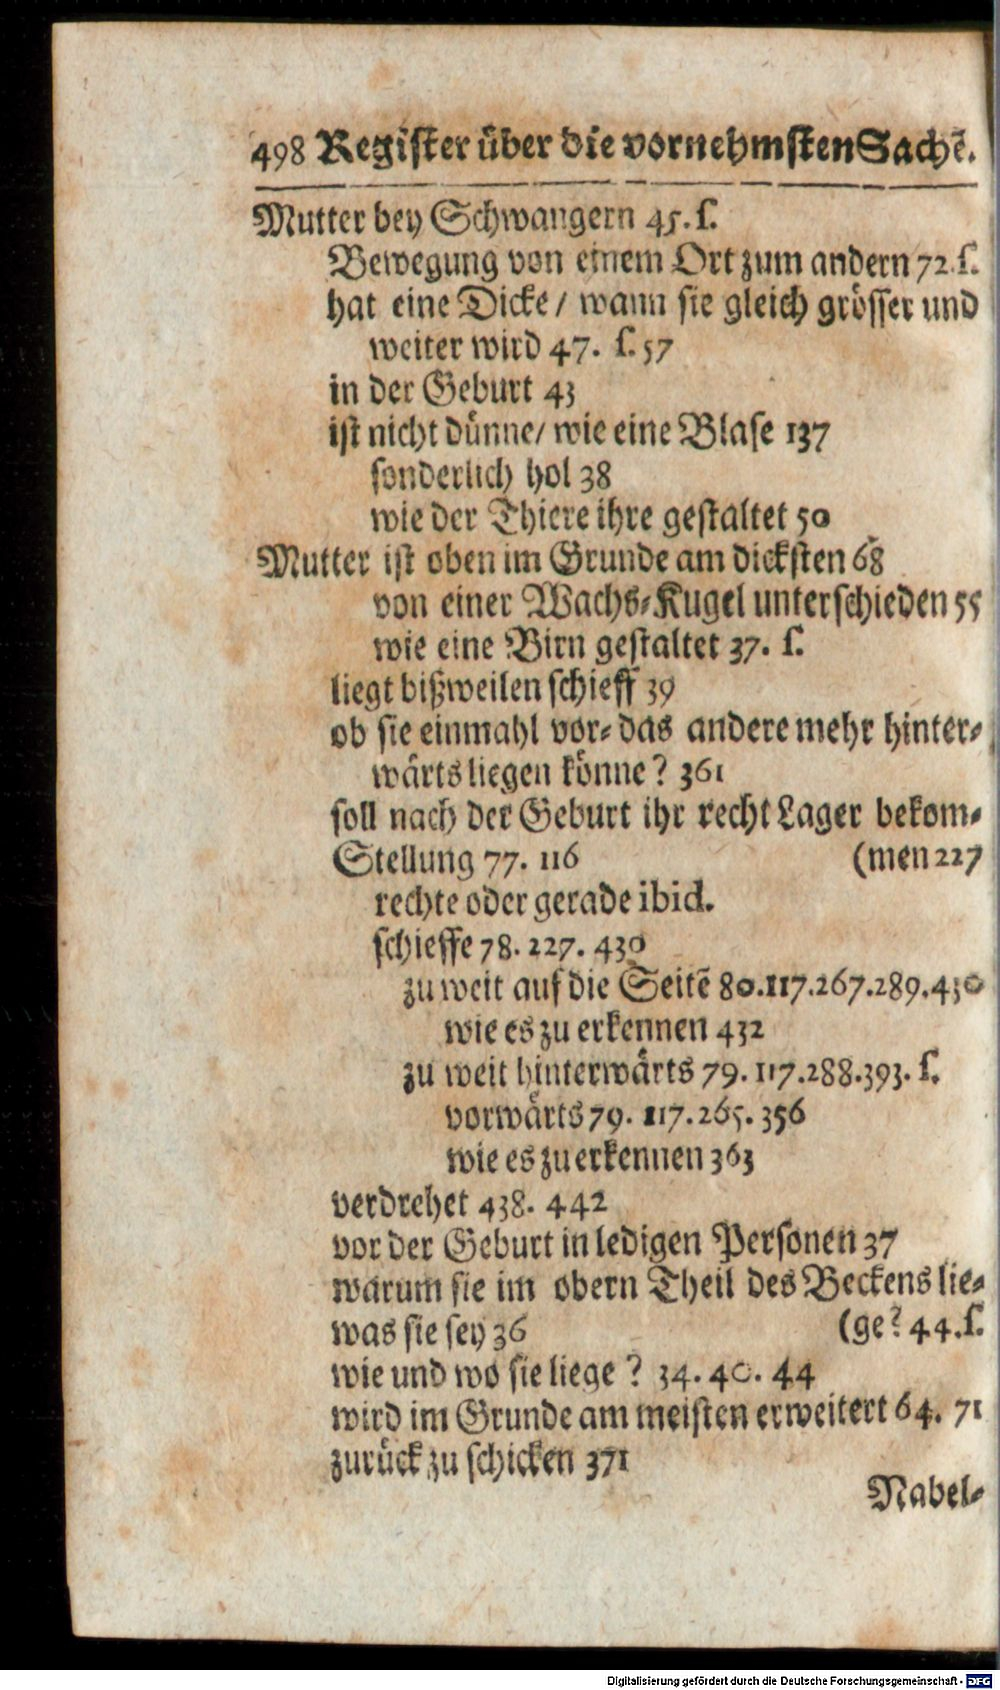 498 Register über die vornehmsten Sachē.
Mutter bey Schwangern 45. s.
Bewegung von einem Ort zum andern 72. s.
hat eine Dicke / wann sie gleich grösser und
weiter wird 47. s. 57
in der Geburt 43
ist nicht dünne / wie eine Blase 137
sonderlich hol 38
wie der Thiere ihre gestaltet 50
Mutter ist oben im Grunde am dicksten 68
von einer Wachs-Kugel unterschieden 55
wie eine Birn gestaltet 37. s.
liegt bißweilen schieff 39
ob sie einmahl vor- das andere mehr hinter-
wärts liegen könne? 361
soll nach der Geburt ihr recht Lager bekom-
Stellung 77. 116 (men 227
rechte oder gerade ibid.
schieffe 78. 227. 430
zu weit auf die Seitē 80. 117. 267. 289. 430
wie es zu erkennen 432
zu weit hinterwärts 79. 117. 288. 393. s.
vorwärts 79. 117. 265. 356
wie es zu erkennen 363
verdrehet 438. 442
vor der Geburt in ledigen Personen 37
warum sie im obern Theil des Beckens lie-
was sie sey 36 (ge? 44. s.
wie und wo sie liege? 34. 40. 44
wird im Grunde am meisten erweitert 64. 71
zurück zu schicken 371
Nabel-
Digitalisierung gefördert durch die Deutsche Forschungsgemeinschaft - DFG